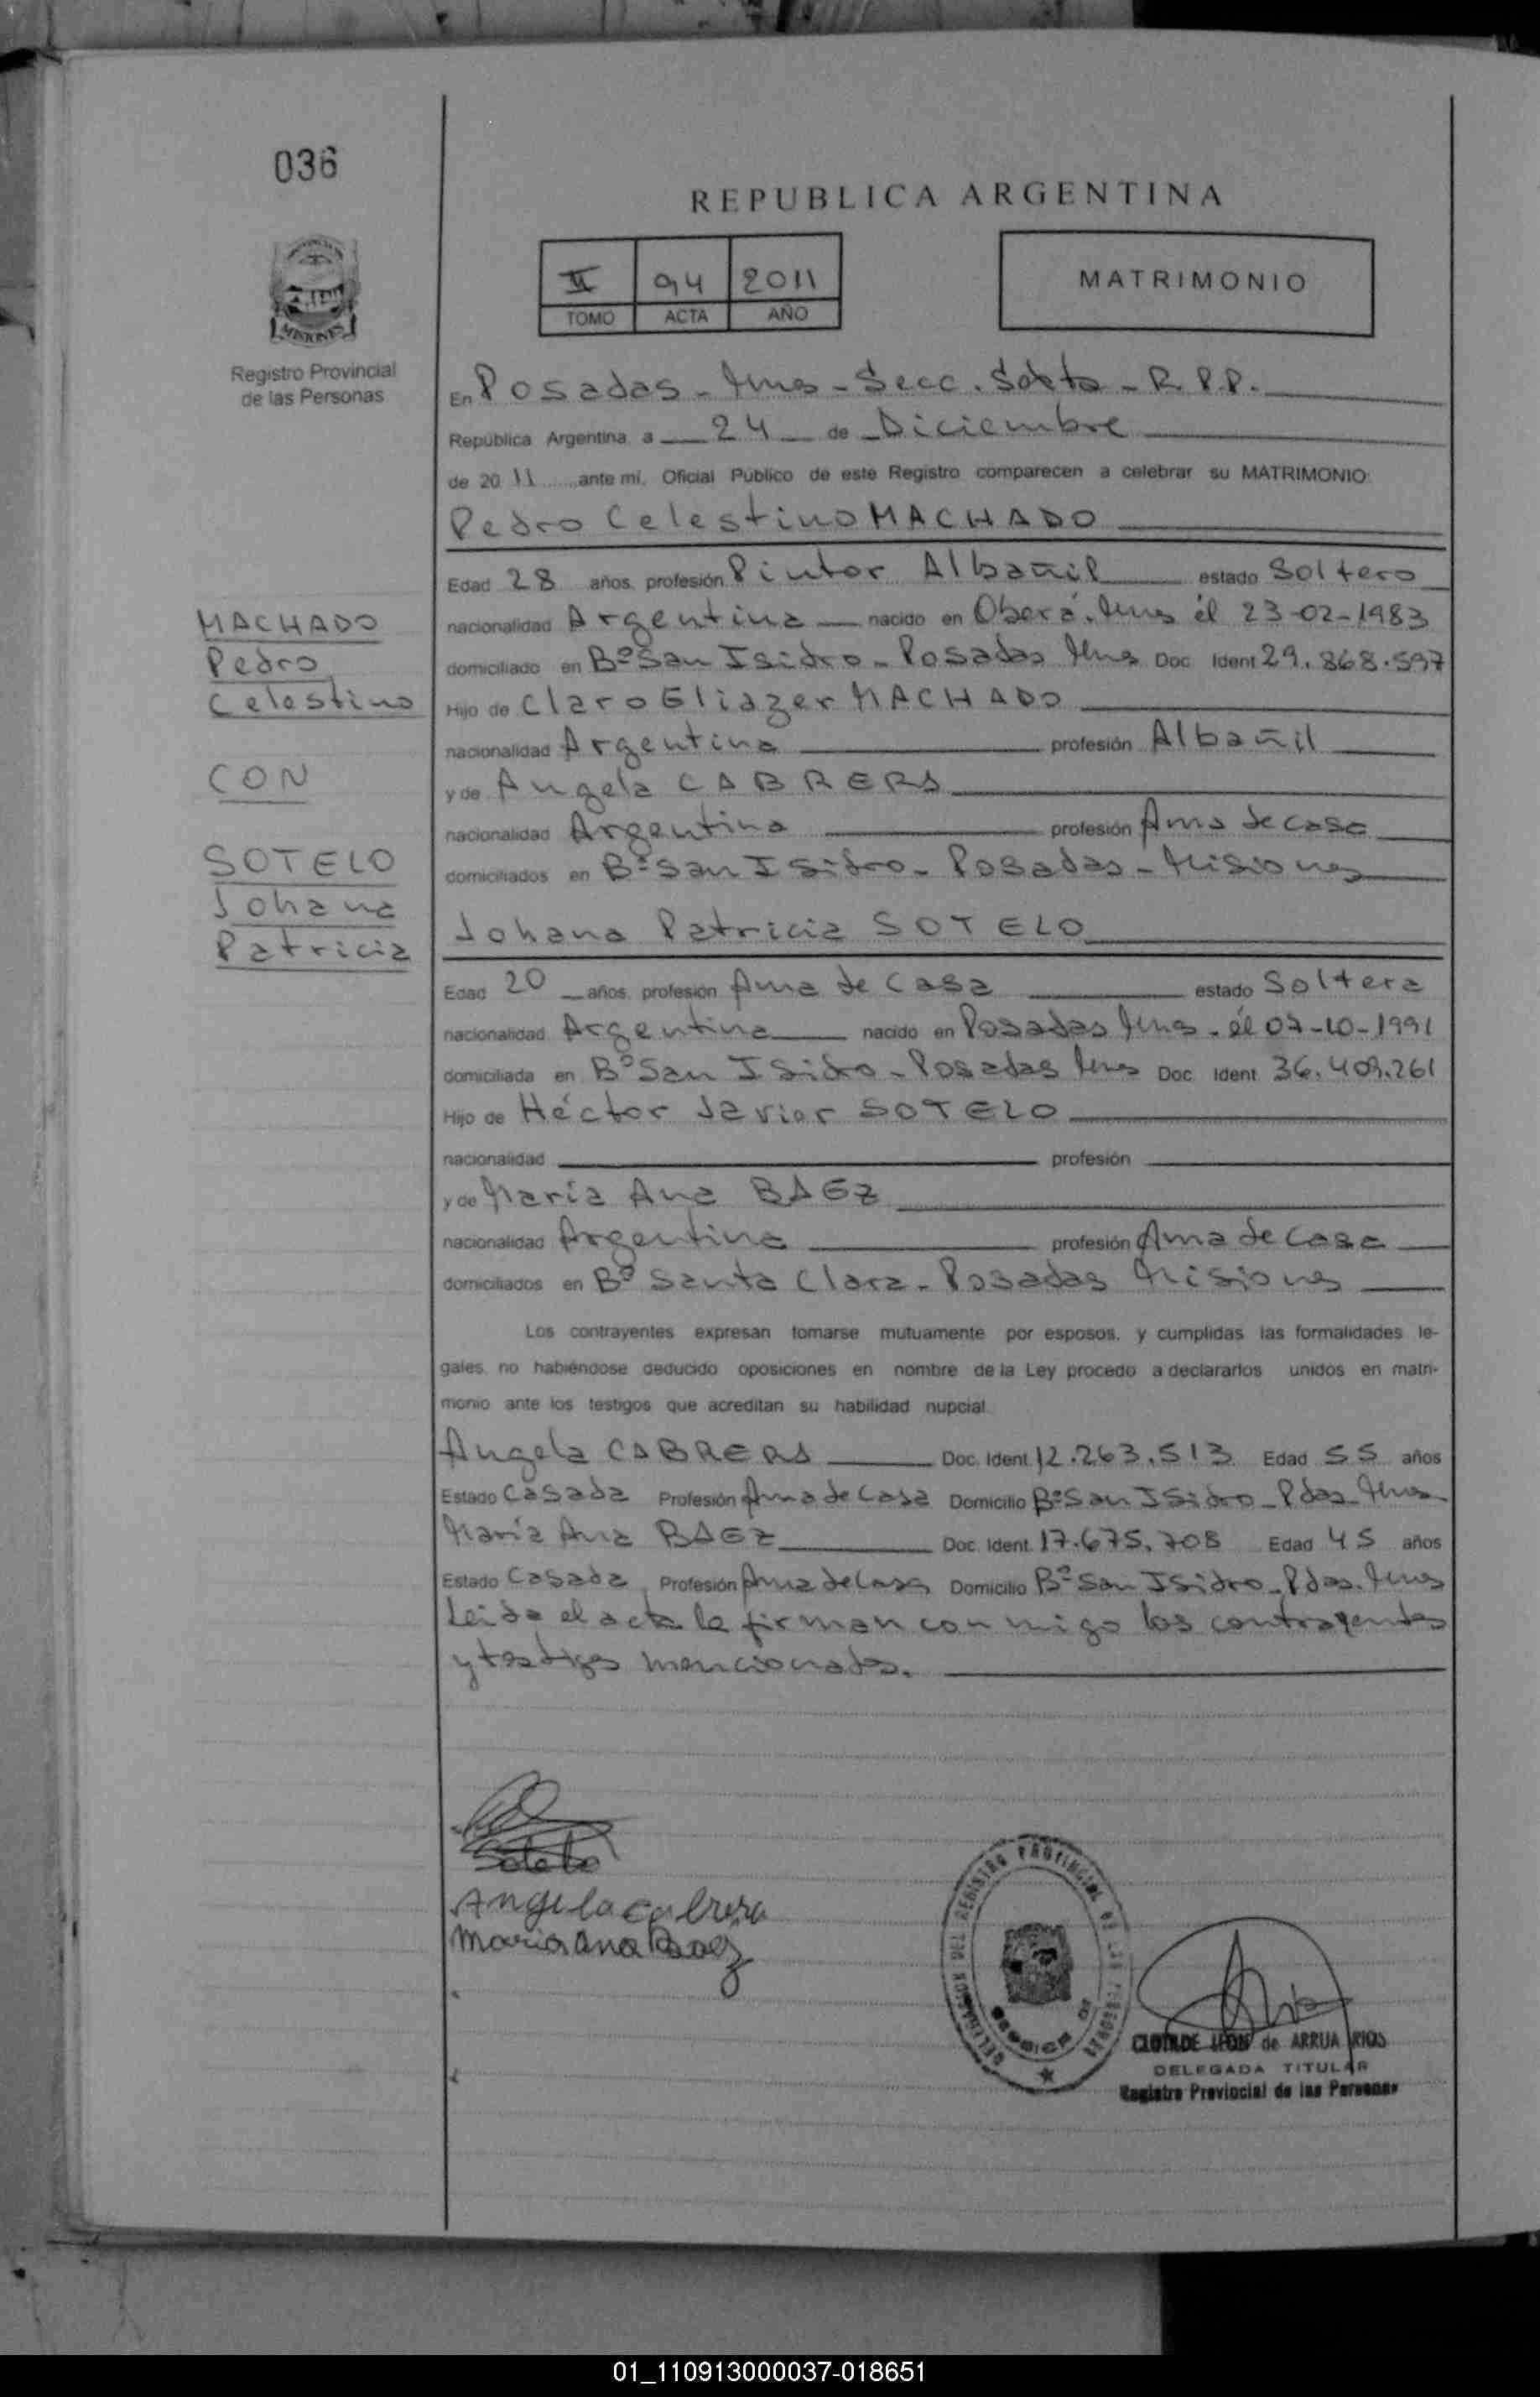 036
REPUBLICA ARGENTINA
II 94 2011
TOMO ACTA AÑO
MATRIMONIO
MISIONES
Registro Provincial
de las Personas
En Posadas - Mnes - Secc. Sexta - R.P.P.
República Argentina, a 24 de Diciembre
de 2011 ante mí, Oficial Público de este Registro comparecen a celebrar su MATRIMONIO:
Pedro Celestino MACHADO
Edad 28 años, profesión Pintor Albañil estado Soltero
nacionalidad Argentina nacido en Oberá. Mnes él 23-02-1983
domiciliado en Bº San Isidro - Posadas Mnes Doc. Ident 29.868.597
Hijo de Claro Eliazer MACHADO
nacionalidad Argentina profesión Albañil
y de Angela CABRERA
nacionalidad Argentina profesión Ama de casa
domiciliados en Bº San Isidro - Posadas - Misiones
MACHADO
Pedro
Celestino
CON
SOTELO
Johana
Patricia
Johana Patricia SOTELO
Edad 20 años, profesión Ama de Casa estado Soltera
nacionalidad Argentina nacido en Posadas Mnes - él 07-10-1991
domiciliada en Bº San Isidro - Posadas Mnes Doc. Ident 36.409.261
Hijo de Héctor Javier SOTELO
nacionalidad profesión
y de María Ana BAEZ
nacionalidad Argentina profesión Ama de Casa
domiciliados en Bº Santa Clara - Posadas Misiones
Los contrayentes expresan tomarse mutuamente por esposos, y cumplidas las formalidades le-
gales, no habiéndose deducido oposiciones en nombre de la Ley procedo a declararlos unidos en matri-
monio ante los testigos que acreditan su habilidad nupcial.
Angela CABRERA Doc. Ident. 12.263.513 Edad 55 años
Estado Casada Profesión Ama de Casa Domicilio Bº San Isidro - Pdas - Mnes
María Ana BAEZ Doc. Ident. 17.675.708 Edad 45 años
Estado Casada Profesión Ama de Casa Domicilio Bº San Isidro - Pdas. Mnes
Leida el acta la firman con migo los contrayentes
y testigos mencionados.
Sotelo
Angela Cabrera
Maria Ana Baez
DELEGACION DEL REGISTRO PROVINCIAL DE LAS PERSONAS
CLOTILDE LEON de ARRUA RIOS
DELEGADA TITULAR
Registro Provincial de las Personas
01_110913000037-018651